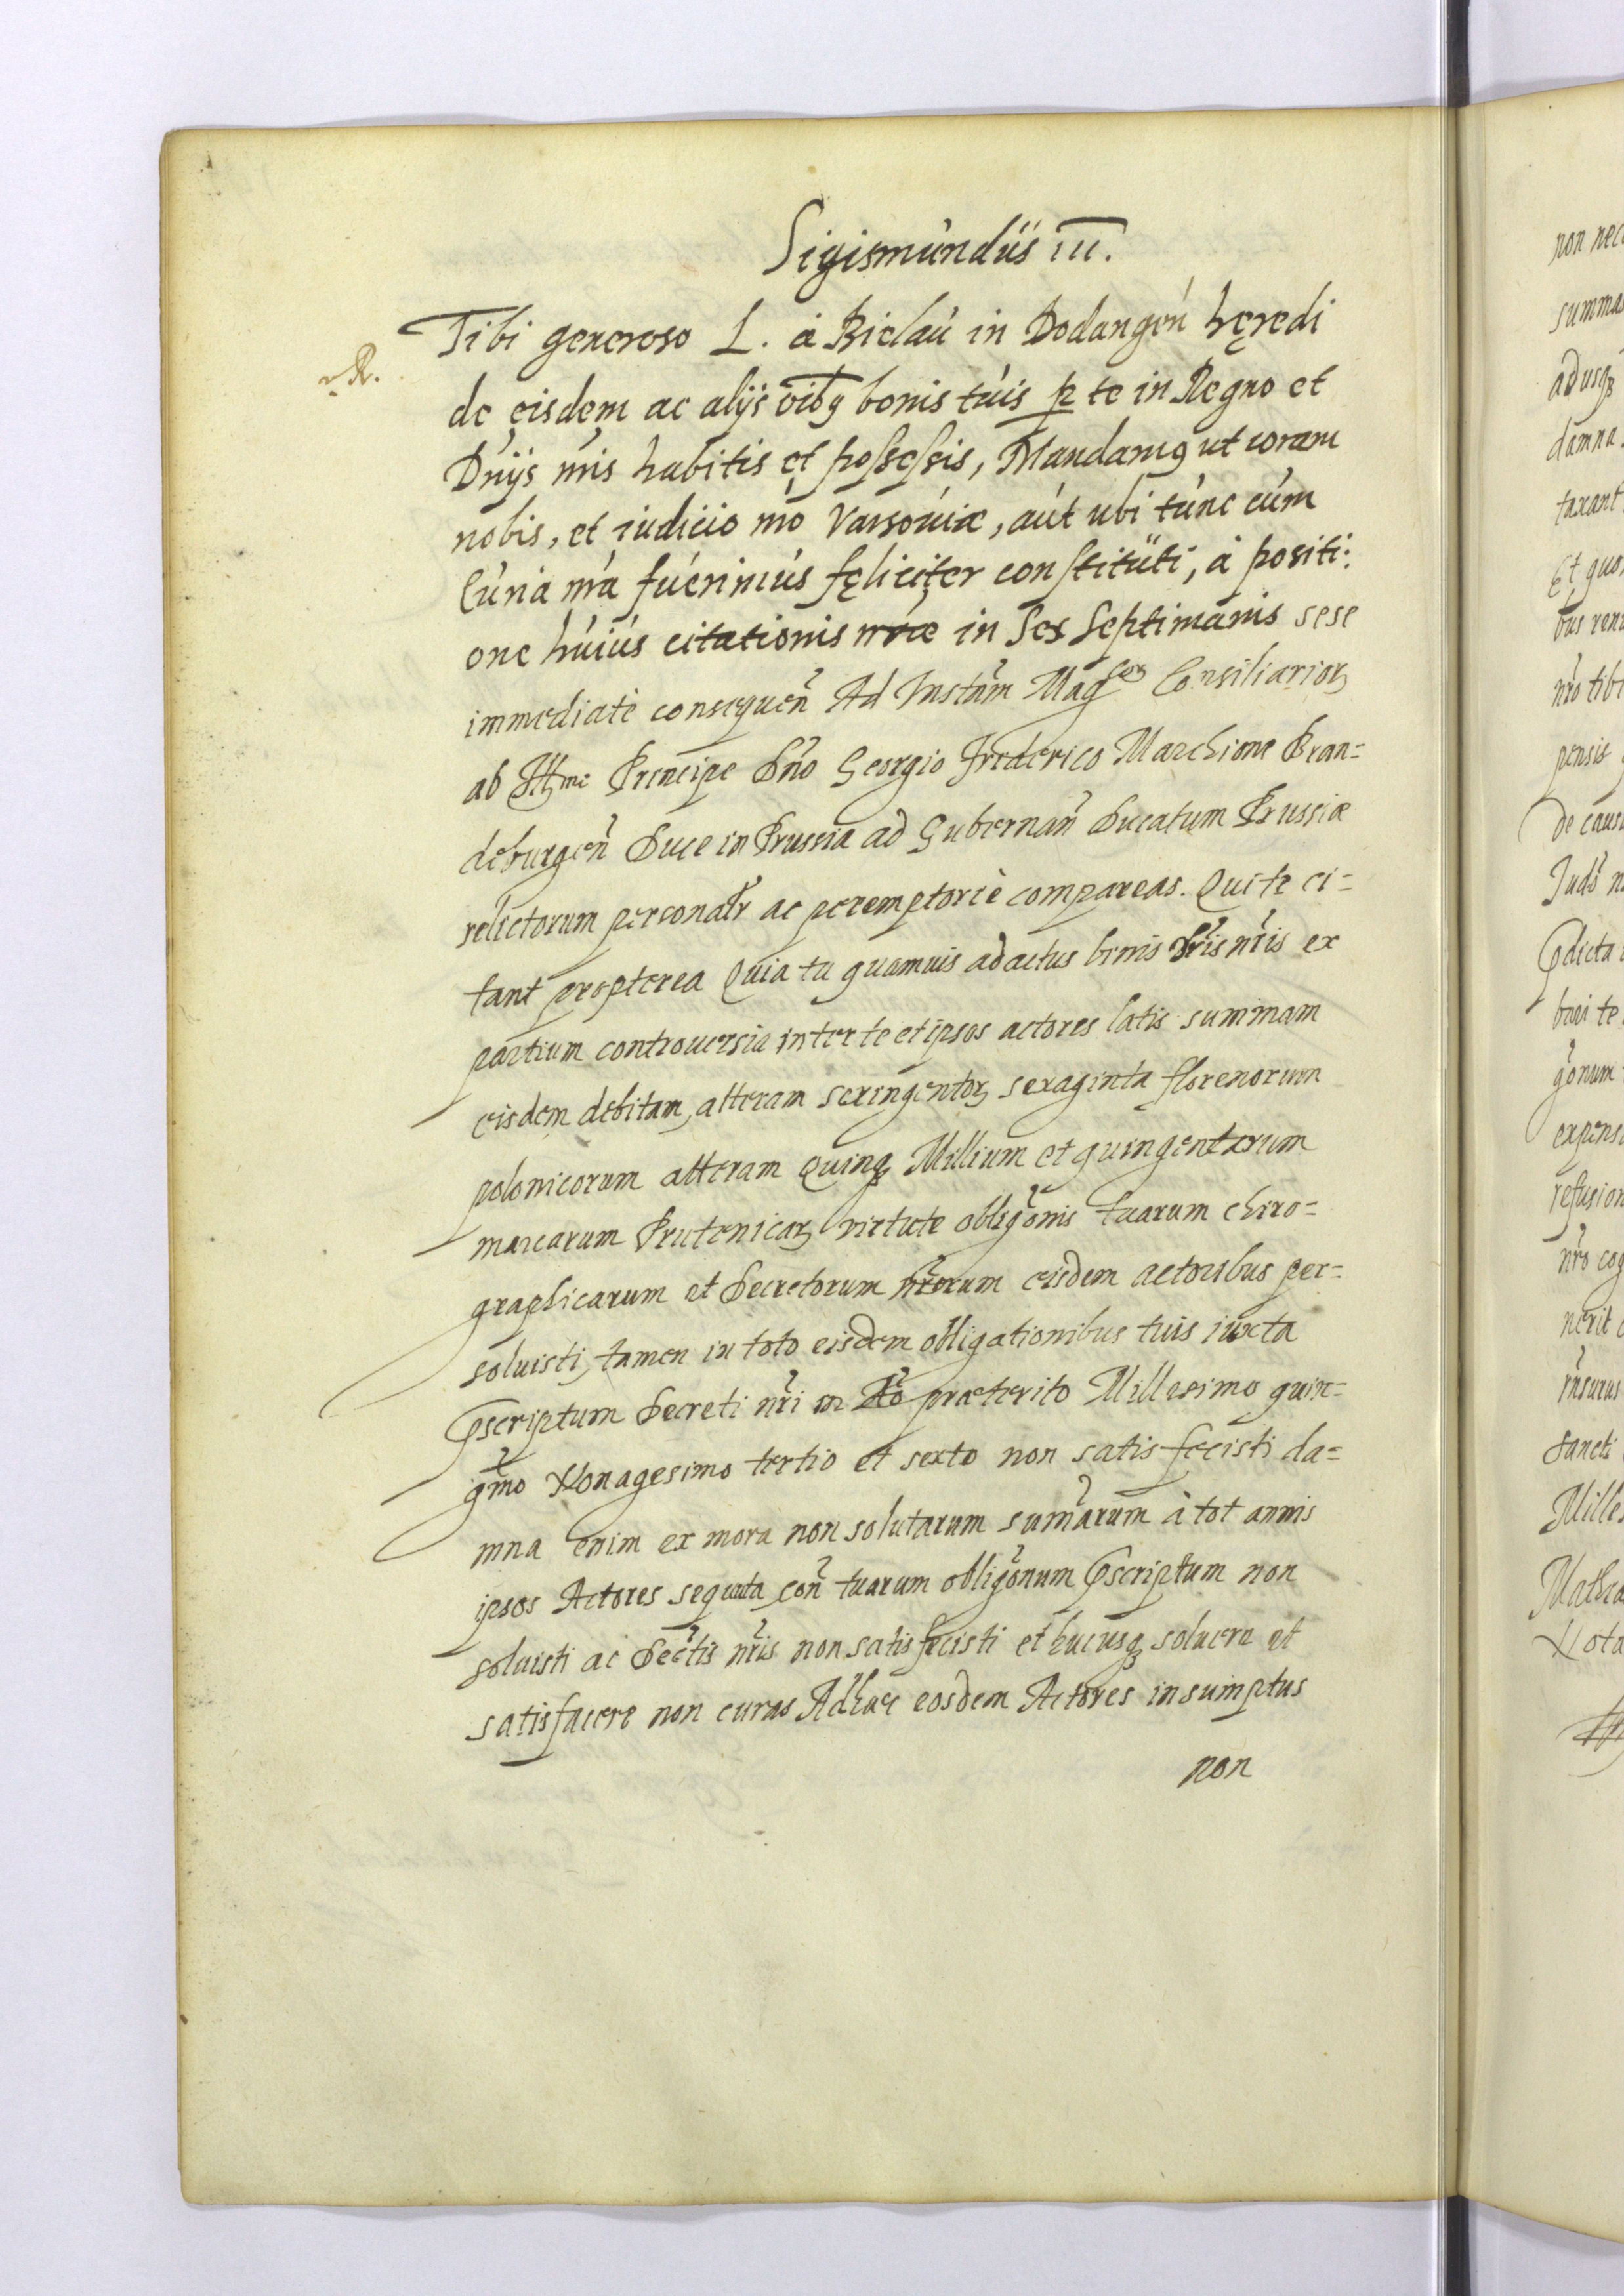 Sigismundus III.
Tibi generoso L. à Bielaú in Dodangen hęredi
R.
de eisdem ac alijs oĩbq bonis tuis p te in Regno et
Dnijs nris habitis et possessis, Mandamq ut coram
nobis, et iudicio nro Varsoviæ, aut ubi tunc cum
Curia nra fuerimus fęliciter constituti, à positi:
one huius citationis nræ in Sex Septimanis sese
immediatè consequeñ Ad Instãm Magcorꝝ Consiliarioꝝ
ab Illme Principe Dño Georgio Frederico Marchione Bran=
deburgeñ Duce in Prussia ad Gubernañ Ducatum Prussiæ
relictorum personalr ac peremptoriè compareas. Qui te ci=
tant propterea Quia tu quamuis adactus binis nris ex
partium controuersia inter te et ipsos actores latis summam
eisdem debitam, alteram sexingentoꝝ sexaginta florenorum
polonicorum alteram Quinqꝫ Millium et quingentarum
marcarum Prutenicaꝝ virtute obligõnis tuarum chiro=
graphicarum et Decretorum nrorum eisdem actoribus per=
soluisti, tamen in toto eisdem obligationibus tuis iuxta
Pscriptum Decreti nri in præterito Millesimo quin=
gmo Nonagesimo tertio et sexto non satisfecisti da=
mna enim ex mora non solutarum sumarum à tot annis
ipsos Actores sequuta coñ tuarum obligõnum Pscriptum non
soluisti ac Dectis nris non satisfecisti et hucusqꝫ soluere et
satisfacere non curas Adhuc eosdem Actores in sumptus
non